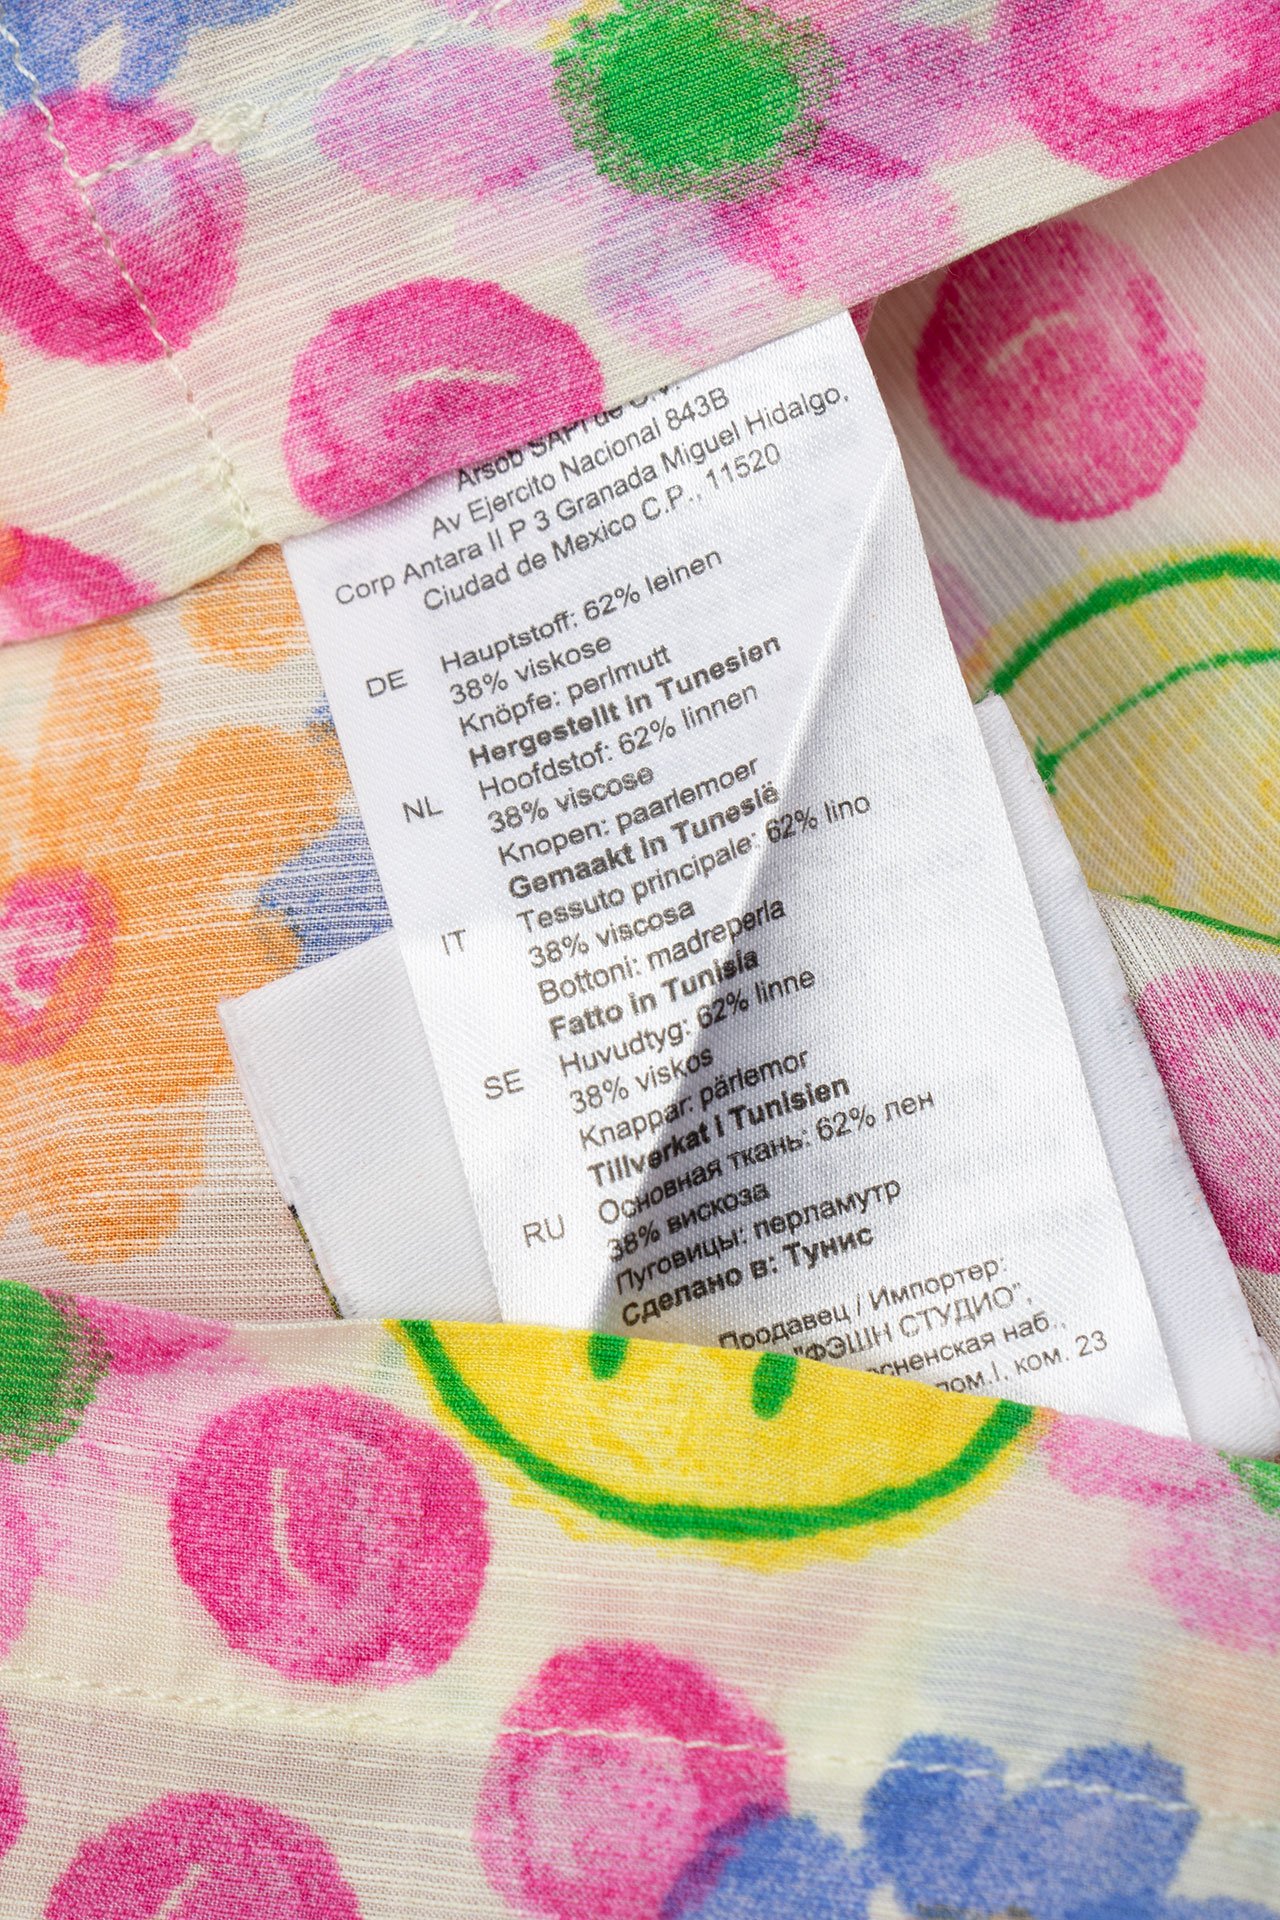 Arsob SAPI de C.V.
Av Ejercito Nacional 843B
Corp Antara II P 3 Granada Miguel Hidalgo,
Ciudad de Mexico C.P., 11520
DE Hauptstoff: 62% leinen
38% viskose
Knöpfe: perlmutt
Hergestellt in Tunesien
NL Hoofdstof: 62% linnen
38% viscose
Knopen: paarlemoer
Gemaakt in Tunesië
IT Tessuto principale: 62% lino
38% viscosa
Bottoni: madreperla
Fatto in Tunisia
SE Huvudtyg: 62% linne
38% viskos
Knappar: pärlemor
Tillverkat i Tunisien
RU Основная ткань: 62% лен
38% вискоза
Пуговицы: перламутр
Сделано в: Тунис
Продавец / Импортер:
"ФЭШН СТУДИО",
наб.,
пом.I, ком. 23